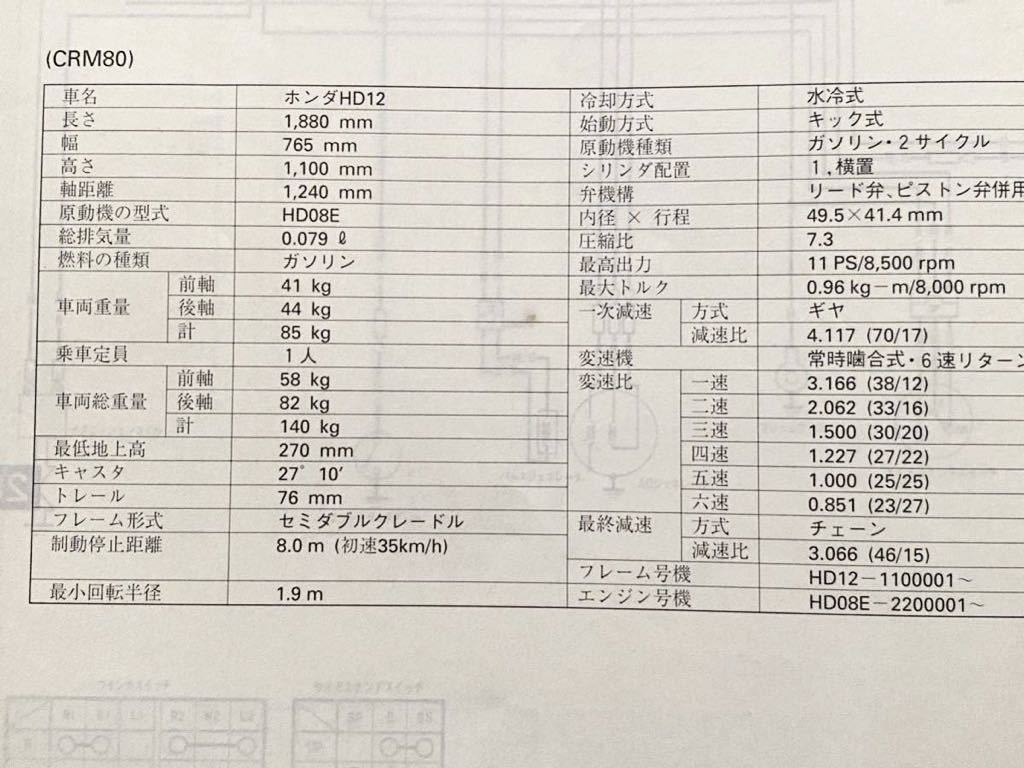 (CRM80)
車名 ホンダHD12
長さ 1,880 mm
幅 765 mm
高さ 1,100 mm
軸距離 1,240 mm
原動機の型式 HD08E
総排気量 0.079 ℓ
燃料の種類 ガソリン
車両重量 前軸 41 kg
後軸 44 kg
計 85 kg
乗車定員 1人
車両総重量 前軸 58 kg
後軸 82 kg
計 140 kg
最低地上高 270 mm
キャスタ 27° 10′
トレール 76 mm
フレーム形式 セミダブルクレードル
制動停止距離 8.0 m (初速35km/h)
最小回転半径 1.9 m
冷却方式 水冷式
始動方式 キック式
原動機種類 ガソリン・2サイクル
シリンダ配置 1，横置
弁機構 リード弁、ピストン弁併用
内径 × 行程 49.5×41.4 mm
圧縮比 7.3
最高出力 11 PS/8,500 rpm
最大トルク 0.96 kg－m/8,000 rpm
一次減速 方式 ギヤ
減速比 4.117 (70/17)
変速機 常時噛合式・6速リターン
変速比 一速 3.166 (38/12)
二速 2.062 (33/16)
三速 1.500 (30/20)
四速 1.227 (27/22)
五速 1.000 (25/25)
六速 0.851 (23/27)
最終減速 方式 チェーン
減速比 3.066 (46/15)
フレーム号機 HD12－1100001～
エンジン号機 HD08E－2200001～